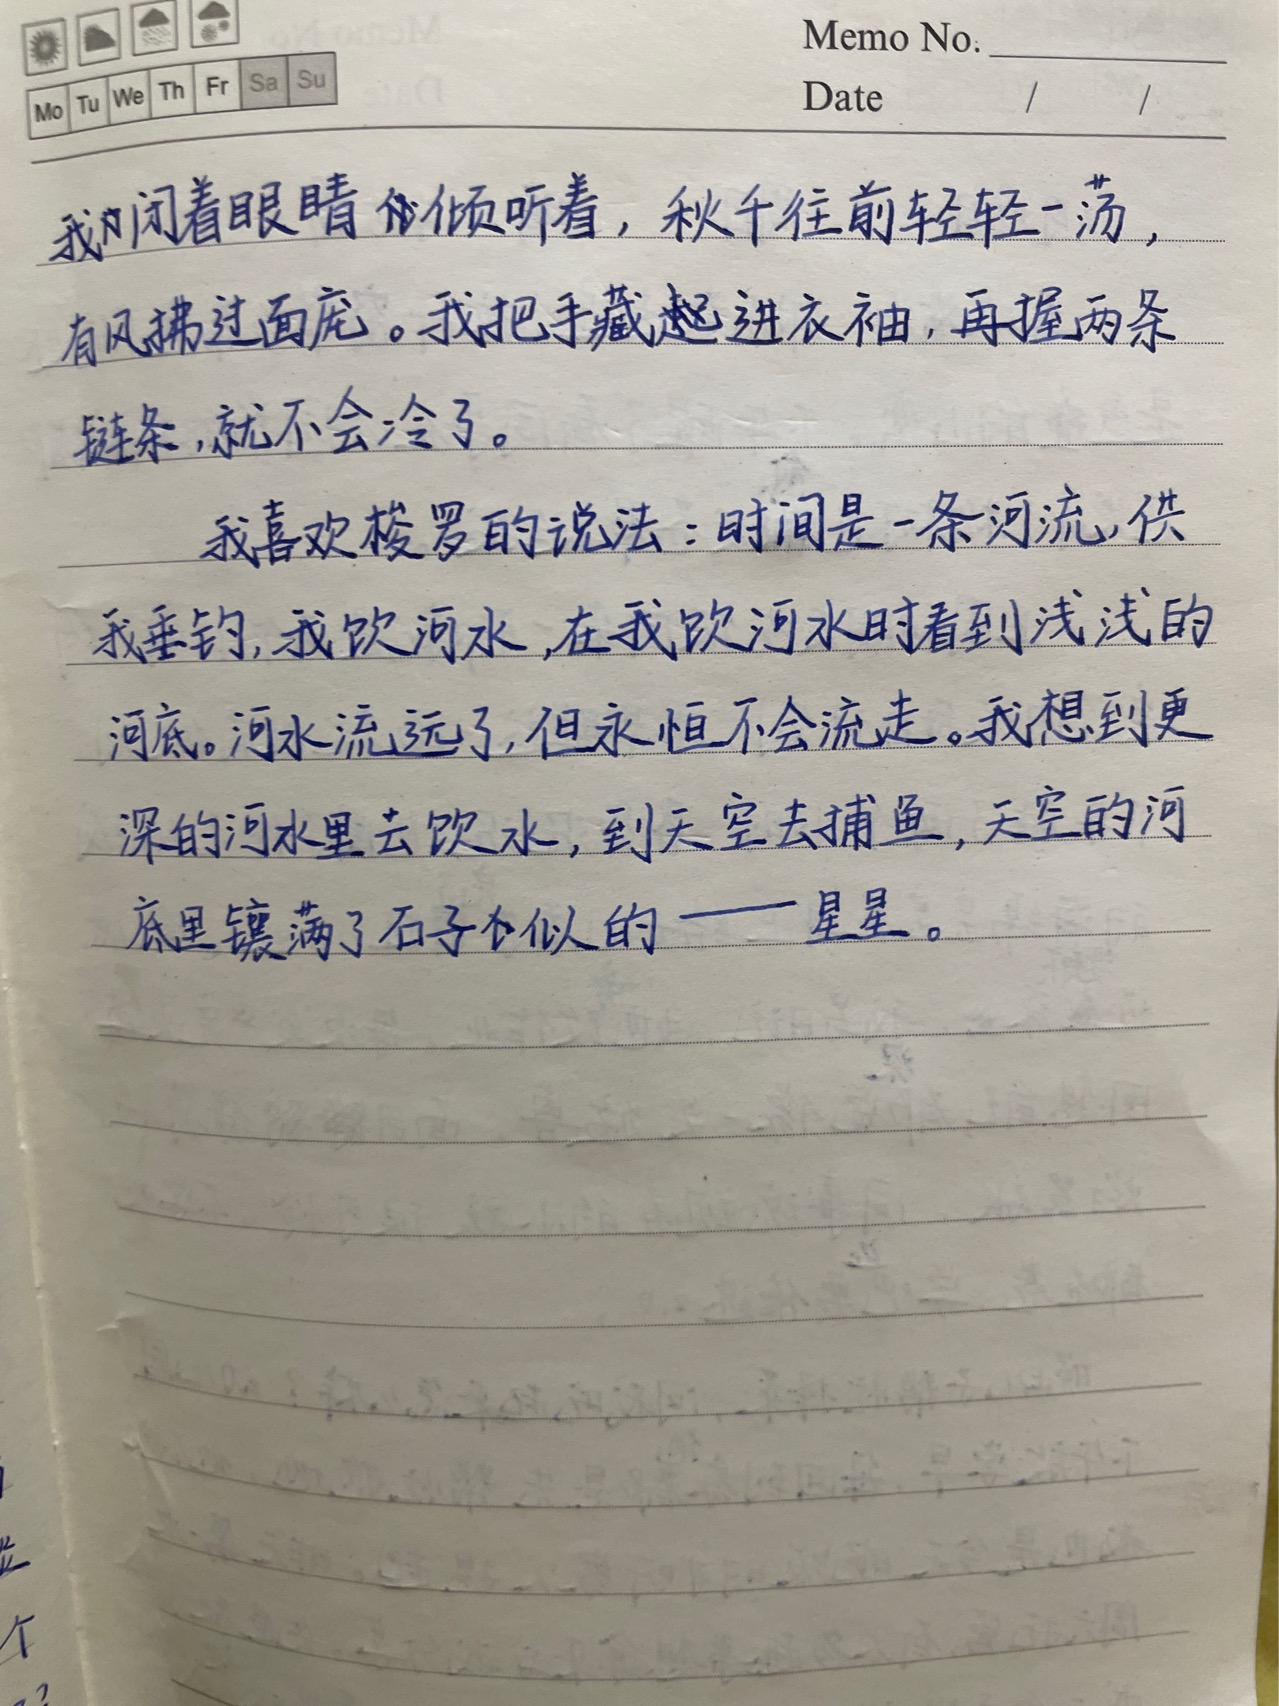 Memo No.
Mo Tu We Th Fr Sa Su
Date / /
我闭着眼睛倾听着，秋千往前轻轻一荡，
有风拂过面庞。我把手藏进衣袖，再握两条
链条，就不会冷了。
我喜欢梭罗的说法：时间是一条河流，供
我垂钓，我饮河水，在我饮河水时看到浅浅的
河底。河水流远了，但永恒不会流走。我想到更
深的河水里去饮水，到天空去捕鱼，天空的河
底里镶满了石子似的——星星。
个